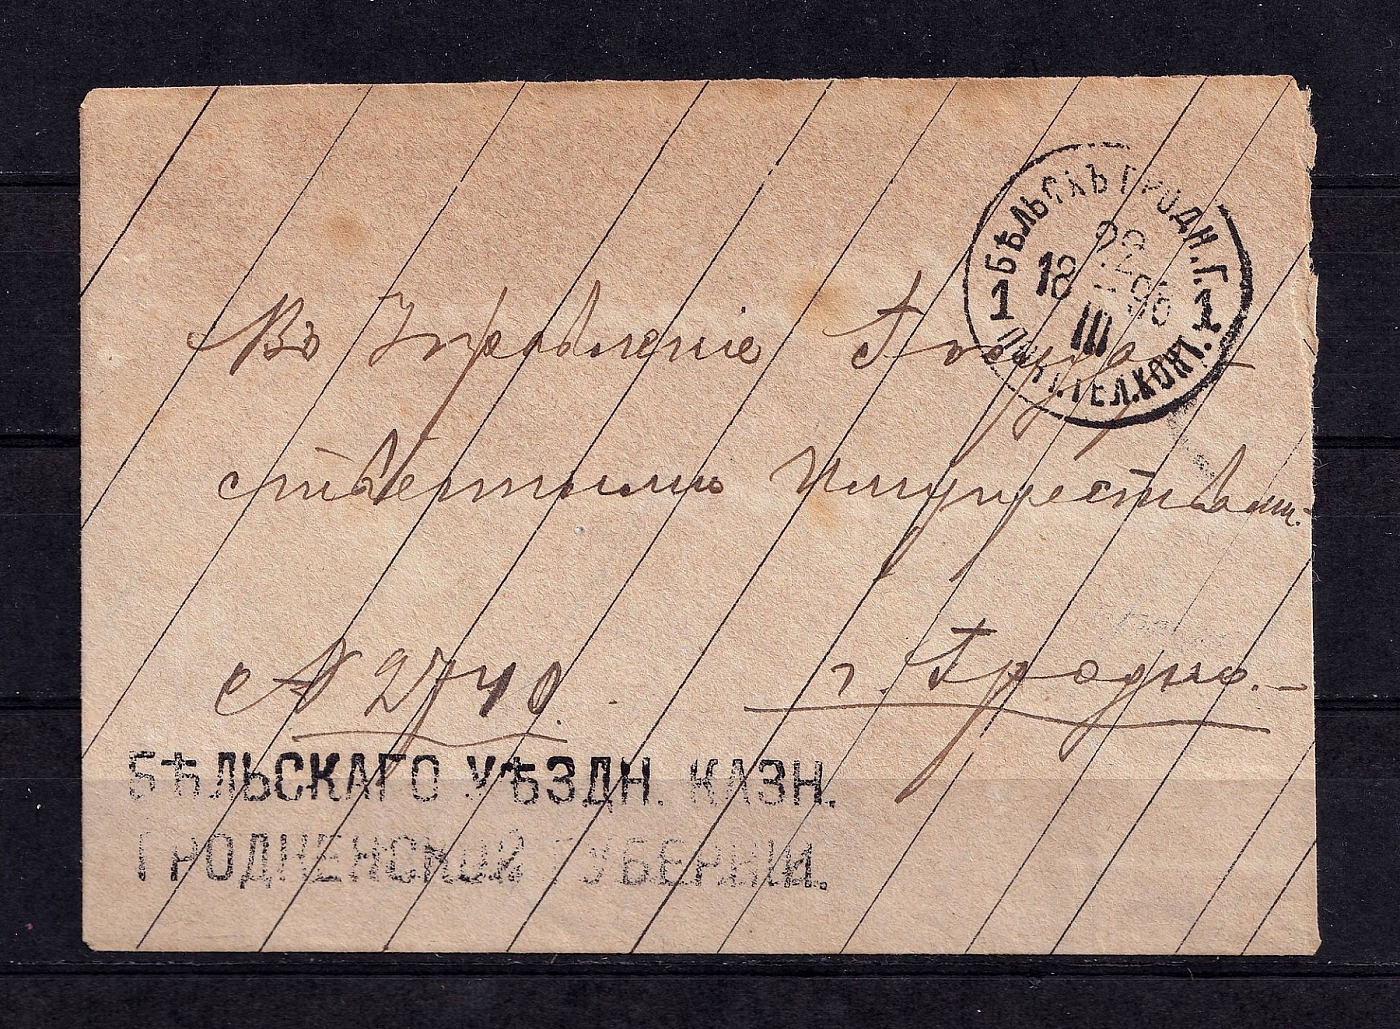 БѢЛЬСКЪ ГРОДН. Г.
22
18 96
III
1 1
ПОЧТ. ТЕЛ. КОНТ.
Въ Управленіе Государ-
ственными Имуществами.
г. Гродно.-
№ 2740.
БѢЛЬСКАГО УѢЗДН. КАЗН.
ГРОДНЕНСКОЙ ГУБЕРНІИ.